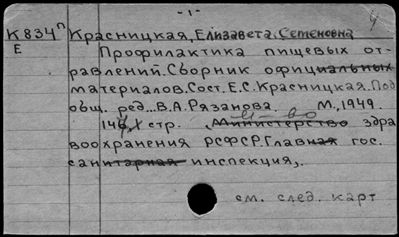 -1-
К834п Красницкая, Елизавета Семеновна
Е Профилактика пищевых от-
равлений. Сборник официальных
материалов. Сост. Е.С. Красницкая. Под
общ. ред... В.А. Рязанова. М., 1949.
стр. Министерство здра
воохранения РСФСР. Главная гос.
санитарная инспекция,.
см. след. карт